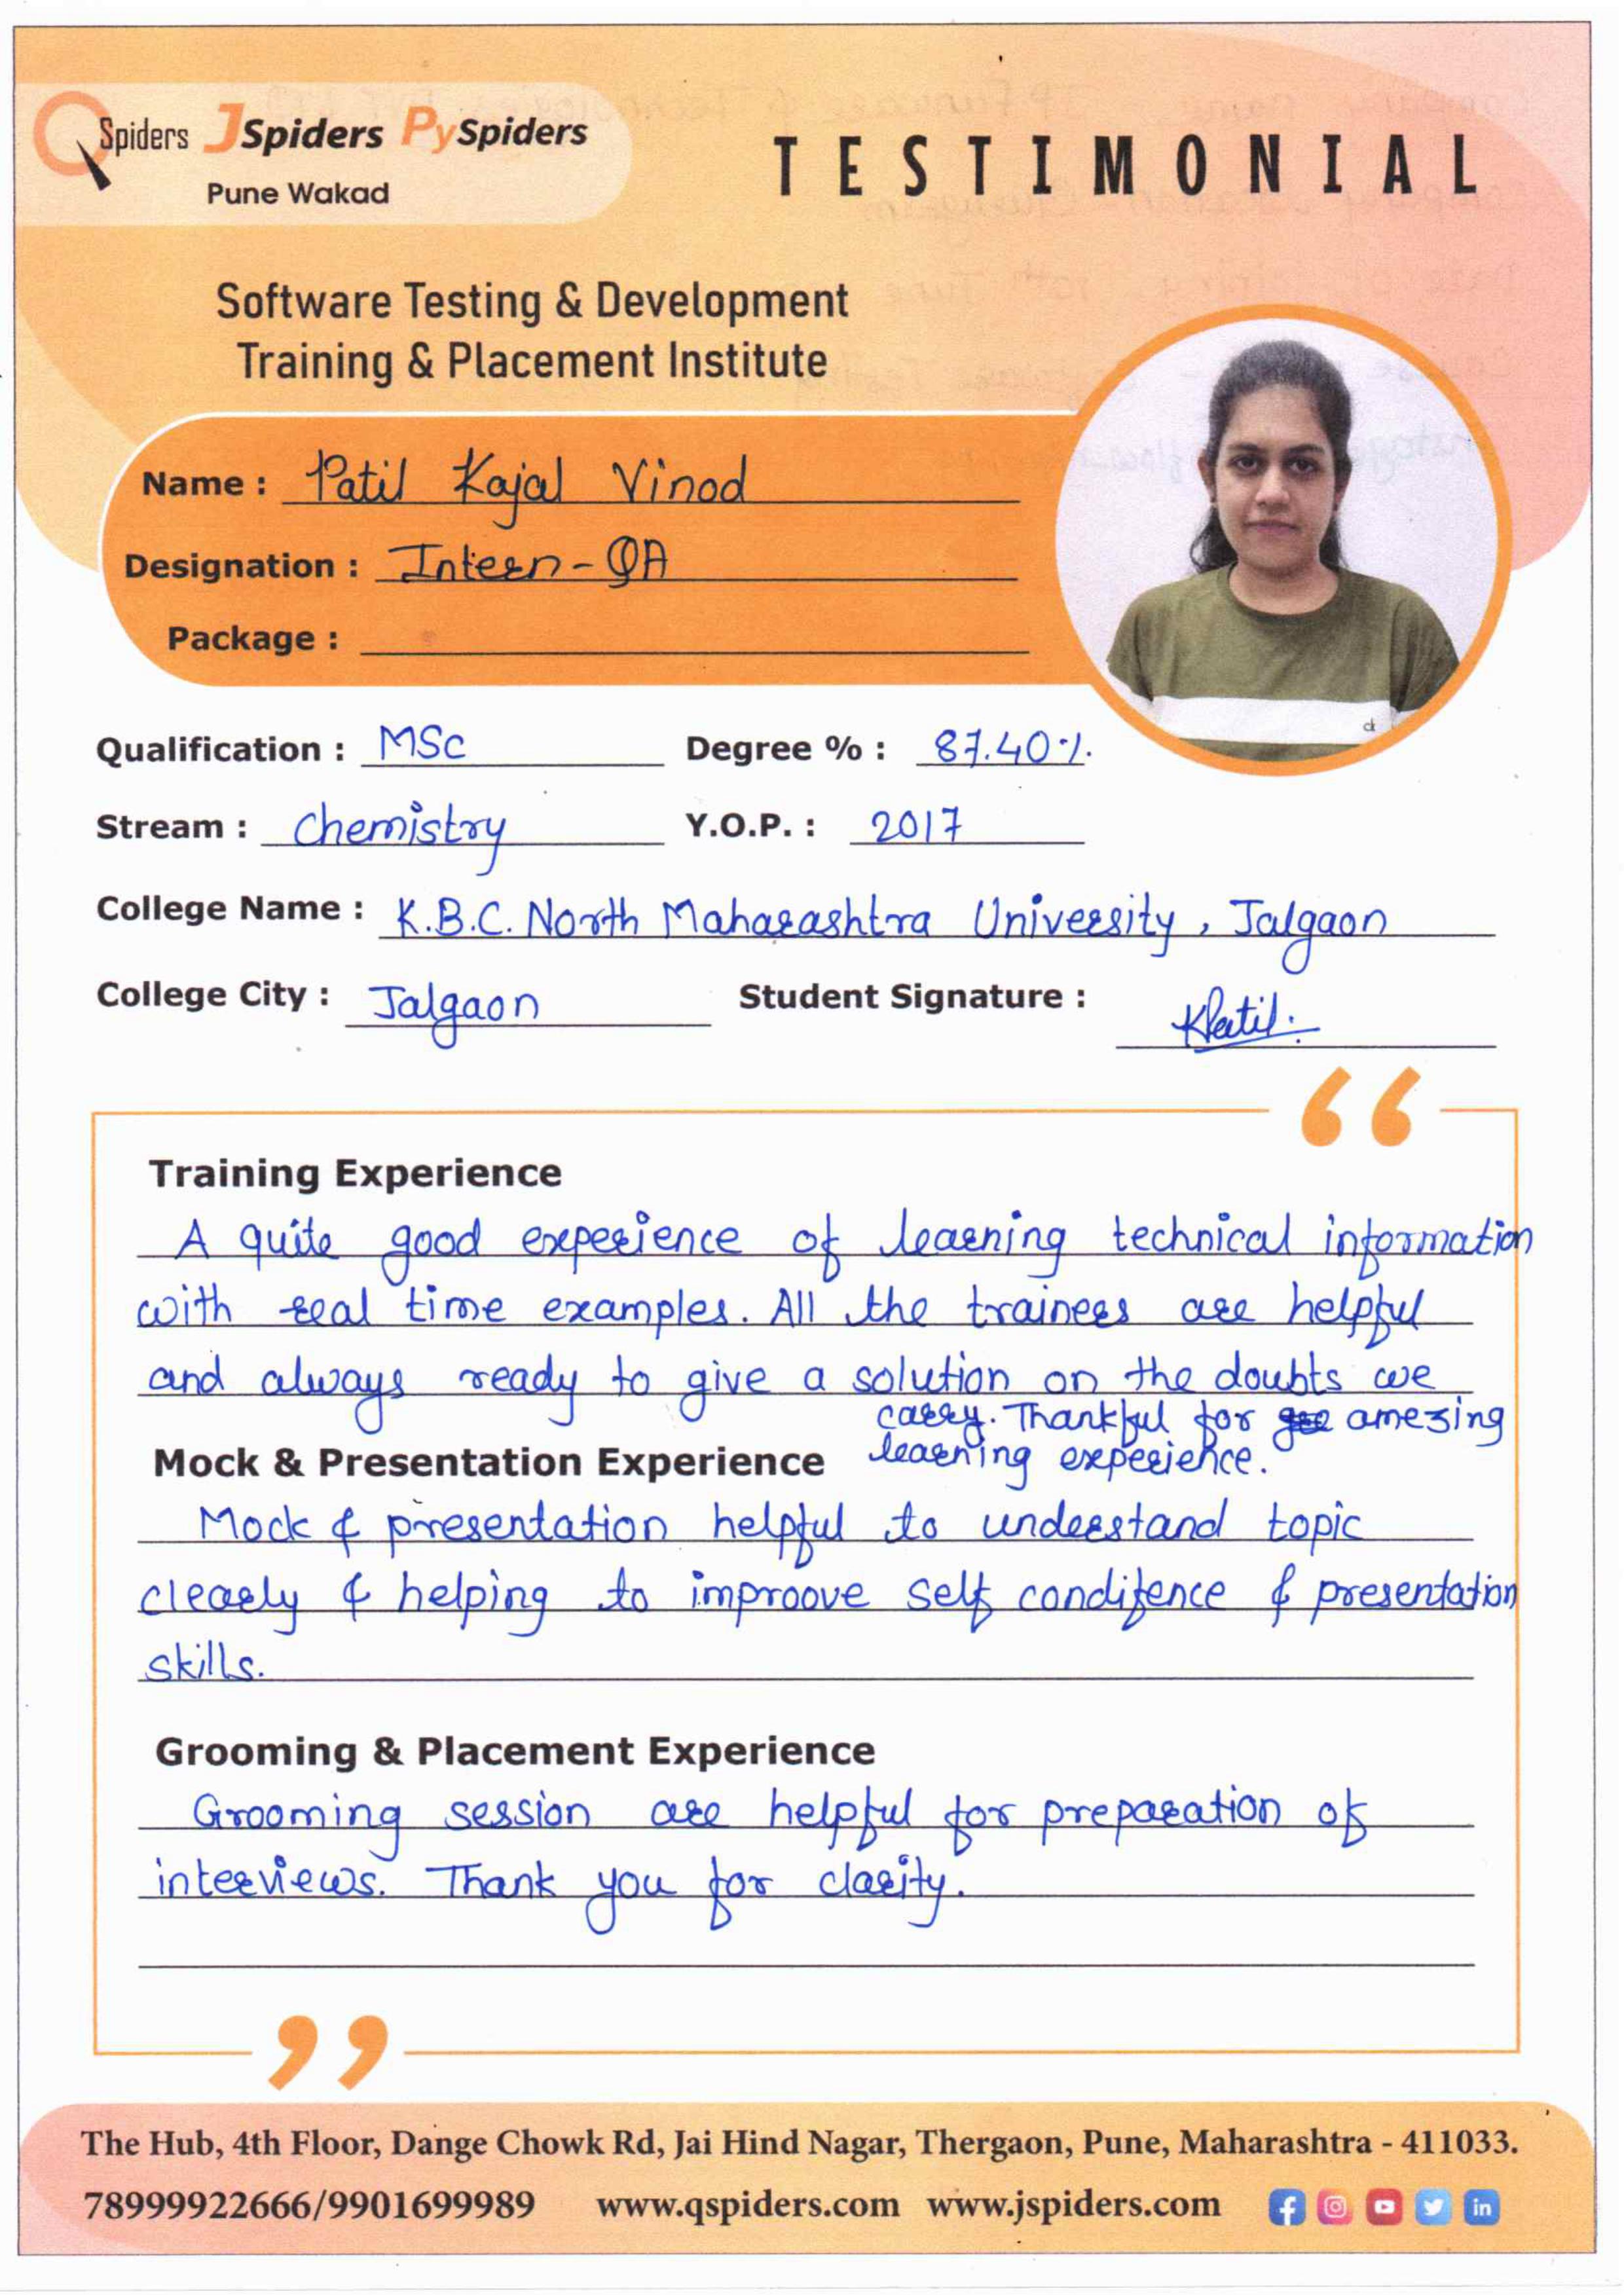 QSpiders JSpiders PySpiders
Pune Wakad
TESTIMONIAL
Software Testing & Development
Training & Placement Institute
Name : Patil Kajal Vinod
Designation : Intern-QA
Package :
Qualification : MSc Degree % : 87.40%.
Stream : Chemistry Y.O.P. : 2017
College Name : K.B.C. North Maharashtra University, Jalgaon
College City : Jalgaon Student Signature : KPatil.
Training Experience
A quite good experience of learning technical information
with real time examples. All the trainers are helpful
and always ready to give a solution on the doubts we
carry. Thankful for amezing
learning experience.
Mock & Presentation Experience
Mock & presentation helpful to understand topic
clearly & helping to improove self condifence & presentation
skills.
Grooming & Placement Experience
Grooming session are helpful for preparation of
interviews. Thank you for clarity.
The Hub, 4th Floor, Dange Chowk Rd, Jai Hind Nagar, Thergaon, Pune, Maharashtra - 411033.
78999922666/9901699989 www.qspiders.com www.jspiders.com